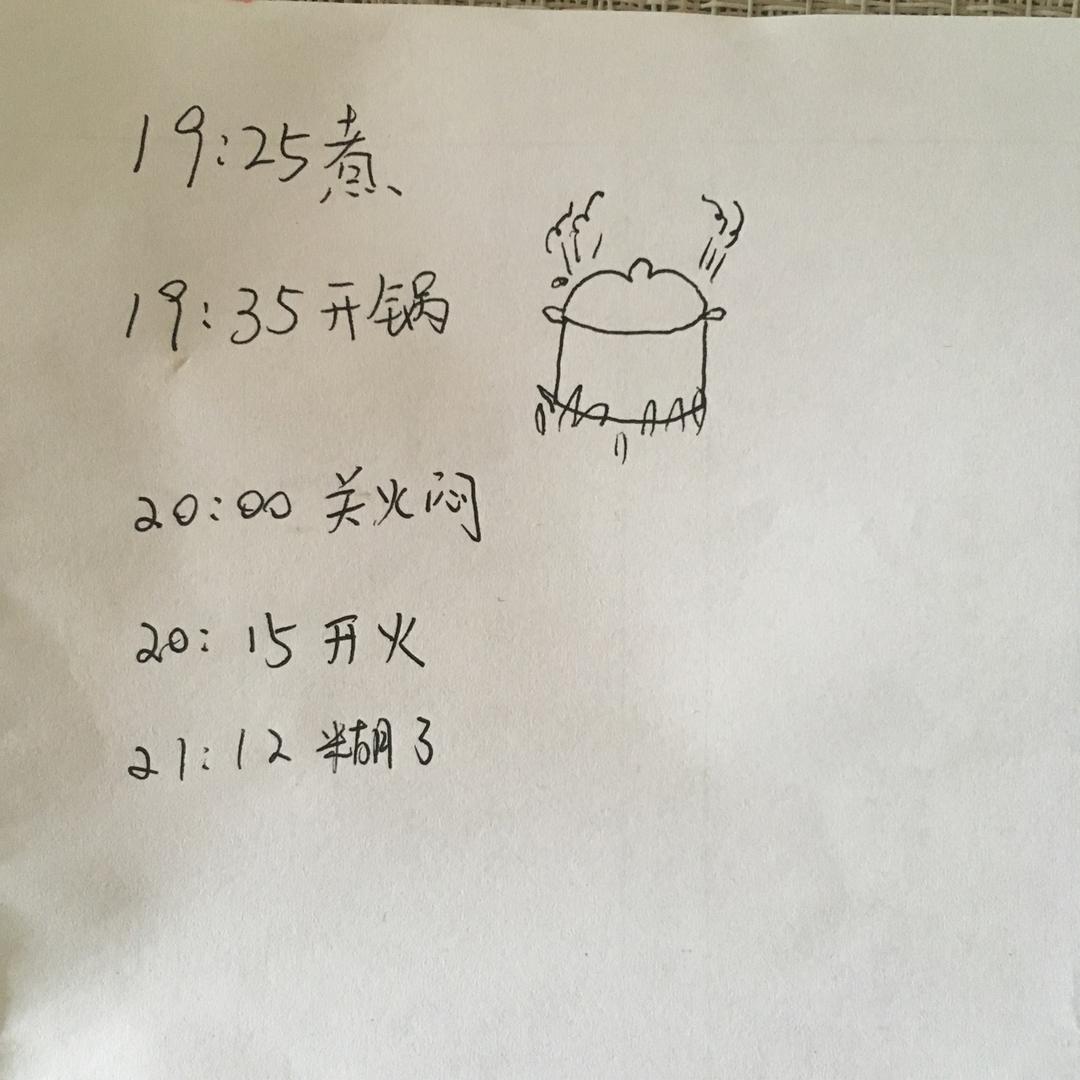 19:25煮
19:35开锅
20:00 关火闷
20:15 开火
21:12 糊了